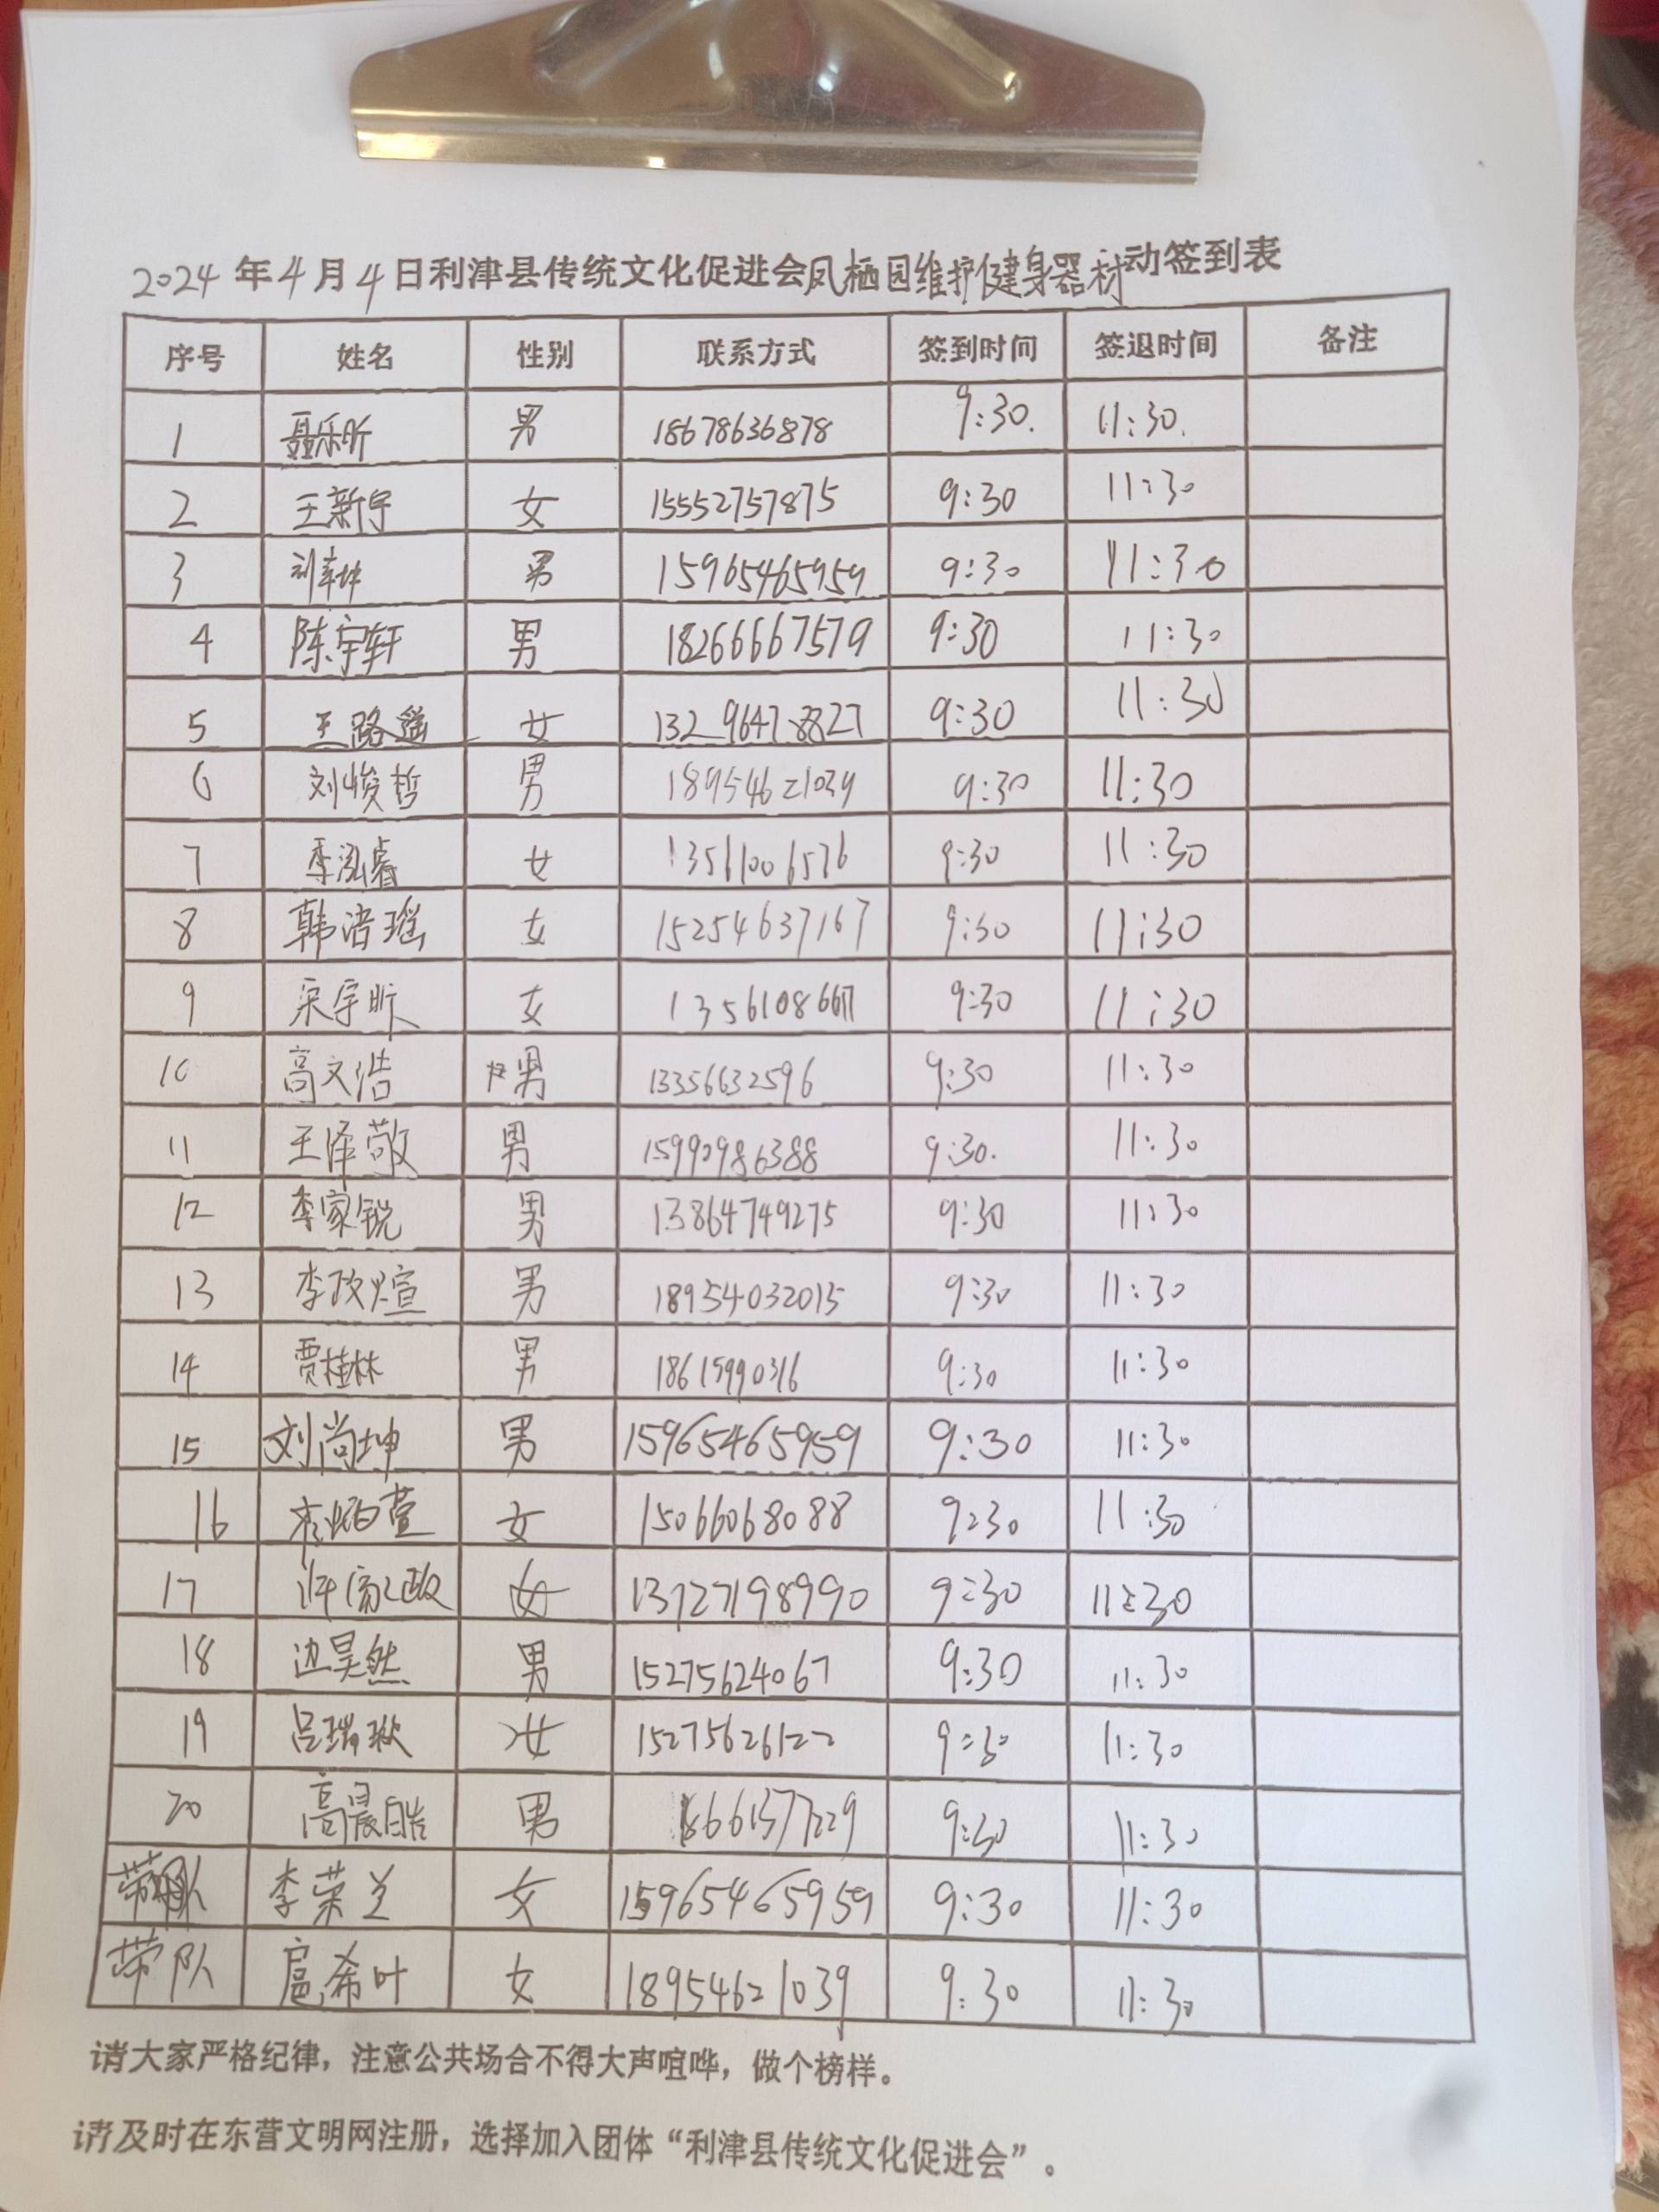 2024年4月4日利津县传统文化促进会凤栖园维护健身器材动签到表
序号 姓名 性别 联系方式 签到时间 签退时间 备注
1 聂乐昕 男 18678636878 9:30. 11:30.
2 王新宇 女 15552757875 9:30 11:30
3 男 15965465959 9:30 11:30
4 陈宇轩 男 18266667579 9:30 11:30
5 王路遥 女 13296478827 9:30 11:30
6 刘俊哲 男 18954621039 9:30 11:30
7 李泓睿 女 13561006576 9:30 11:30
8 韩浩瑶 女 15254637167 9:30 11:30
9 宋宇昕 女 9:30 11:30
10 高文浩 男 13356632596 9:30 11:30
11 王泽敬 男 15990986388 9:30. 11:30
12 李家锐 男 13864749275 9:30 11:30
13 李政煊 男 18954032015 9:30 11:30
14 贾桂林 男 18615990316 9:30 11:30
15 刘尚坤 男 15965465959 9:30 11:30
16 女 15066068088 9:30 11:30
17 女 9:30 11:30
18 边昊然 男 15275624067 9:30 11:30
19 女 15275626122 9:30 11:30
20 高晨皓 男 9:30 11:30
带队 李荣兰 女 15965465959 9:30 11:30
带队 扈希叶 女 18954621039 9:30 11:30
请大家严格纪律，注意公共场合不得大声喧哗，做个榜样。
请及时在东营文明网注册，选择加入团体“利津县传统文化促进会”。